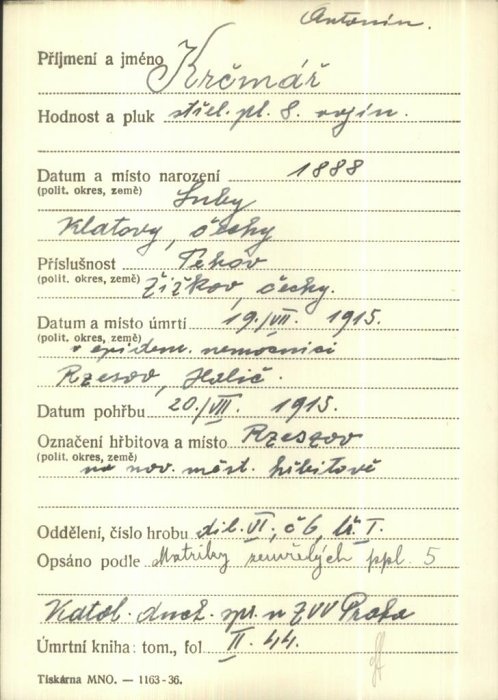 Antonín.
Příjmení a jméno Krčmář
Hodnost a pluk střel. pl. 8. vojín.
Datum a místo narození 1888
(polit. okres, země) Luby
Klatovy, Čechy
Příslušnost Tehov
(polit. okres, země) Žižkov, Čechy.
Datum a místo úmrtí 19./VII. 1915.
(polit. okres, země)
v epidem. nemocnici
Rzesov, Halič.
Datum pohřbu 20./VII. 1915.
Označení hřbitova a místo Rzeszov
(polit. okres, země)
na nov. měst. hřbitově
Oddělení, číslo hrobu díl. VI, č 6, I.
Opsáno podle Matriky zemřelých ppl. 5
Katol. duch. spr. u ZVV Praha
Úmrtní kniha: tom., fol II. 44.
Tiskárna MNO. — 1163-36.